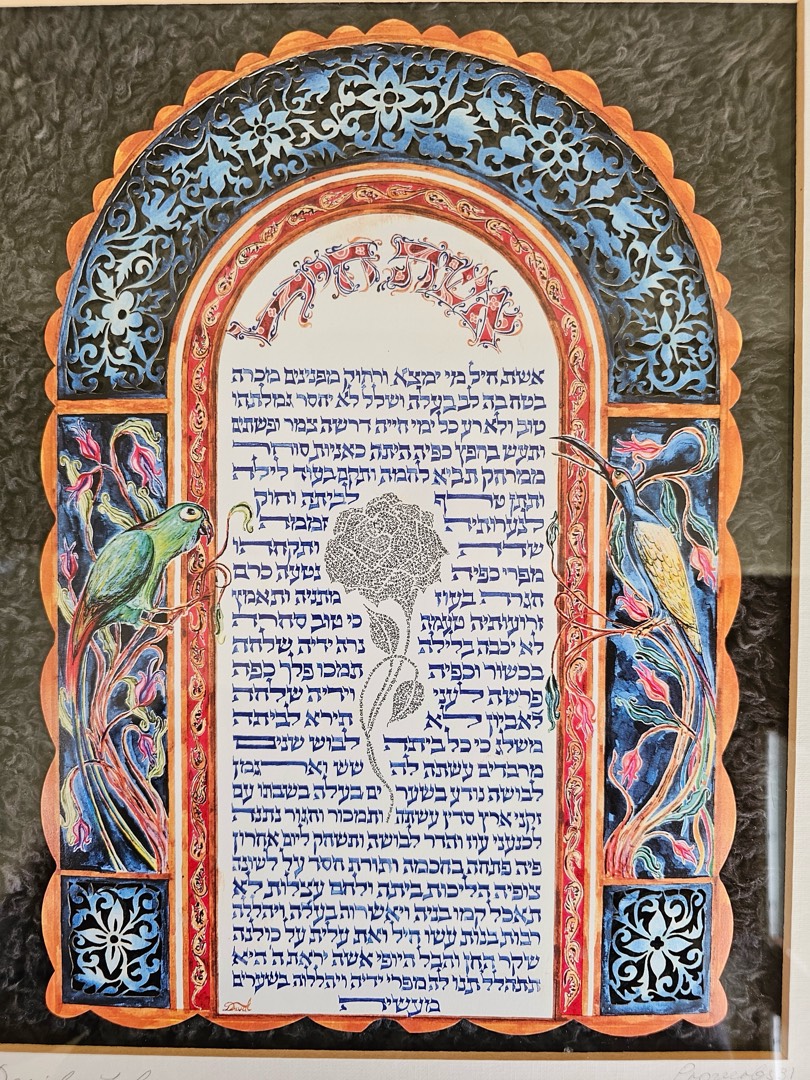 אשת חיל
אשת חיל מי ימצא ורחוק מפנינים מכרה
בטח בה לב בעלה ושלל לא יחסר גמלתהו
טוב ולא רע כל ימי חייה דרשה צמר ופשתים
ותעש בחפץ כפיה היתה כאניות סוחר
ממרחק תביא לחמה ותקם בעוד לילה
ותתן טרף לביתה וחוק
לנערותיה זממה
שדה ותקחהו
מפרי כפיה נטעה כרם
חגרה בעוז מתניה ותאמץ
זרועותיה טעמה כי טוב סחרה
לא יכבה בלילה נרה ידיה שלחה
בכשור וכפיה תמכו פלך כפה
פרשה לעני וידיה שלחה
לאביון לא תירא לביתה
משלג כי כל ביתה לבוש שנים
מרבדים עשתה לה שש וארגמן
לבושה נודע בשערים בעלה בשבתו עם
זקני ארץ סדין עשתה ותמכור וחגור נתנה
לכנעני עוז והדר לבושה ותשחק ליום אחרון
פיה פתחה בחכמה ותורת חסד על לשונה
צופיה הליכות ביתה ולחם עצלות לא
תאכל קמו בניה ויאשרוה בעלה ויהללה
רבות בנות עשו חיל ואת עלית על כולנה
שקר החן והבל היופי אשה יראת ה' היא
תתהלל תנו לה מפרי ידיה ויהללוה בשערים
מעשיה